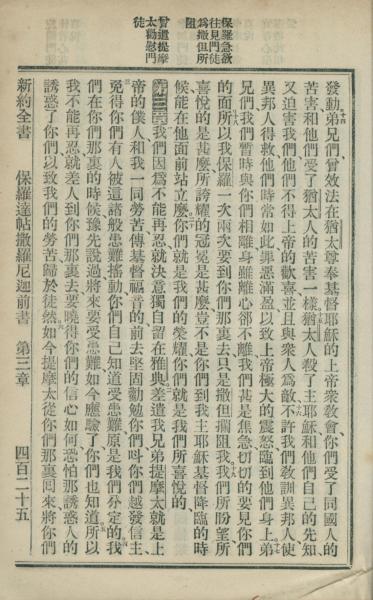 保羅急欲
往見門徒
為撒但所
阻
曾遣提摩
太勸慰門
徒
發動弟兄們曾效法在猶太尊奉基督耶穌的上帝衆敎會你們受了同國人的
苦害和他們受了猶太人的苦害一樣猶太人殺了主耶穌和他們自己的先知
又迫害我們他們不得上帝的歡喜並且與衆人爲敵不許我們敎訓異邦人使
異邦人得救他們時常如此罪惡滿盈以致上帝極大的震怒臨到他們身上弟
兄們我們暫時與你們相離身雖離心却不離我們甚是焦急切切的要見你們
的面所以我保羅一次兩次要到你們那裏去只是撒但攔阻我我們所盼望所
喜悅的是甚麼所誇耀的冠冕是甚麼豈不是你們到我主耶穌基督降臨的時
候能在他面前站立麼你們就是我們的榮耀你們就是我們所喜悅的
第三章我們因爲不能再忍就決意獨自留在雅典差遣我兄弟提摩太就是上
帝的僕人和我一同勞苦傳基督福音的前去堅固勸勉你們叫你們越發信主
免得你們有人被這諸般患難搖動你們自己知道受患難原是我們分定的我
們在你們那裏的時候豫先說過將來要受患難如今應驗了你們也知道所以
我不能再忍就差人到你們那裏去要曉得你們的信心如何恐怕那誘惑人的
誘惑了你們以致我們的勞苦歸於徒然如今提摩太從你們那裏回來將你們
新約全書 保羅達帖撒羅尼迦前書 第三章 四百二十五